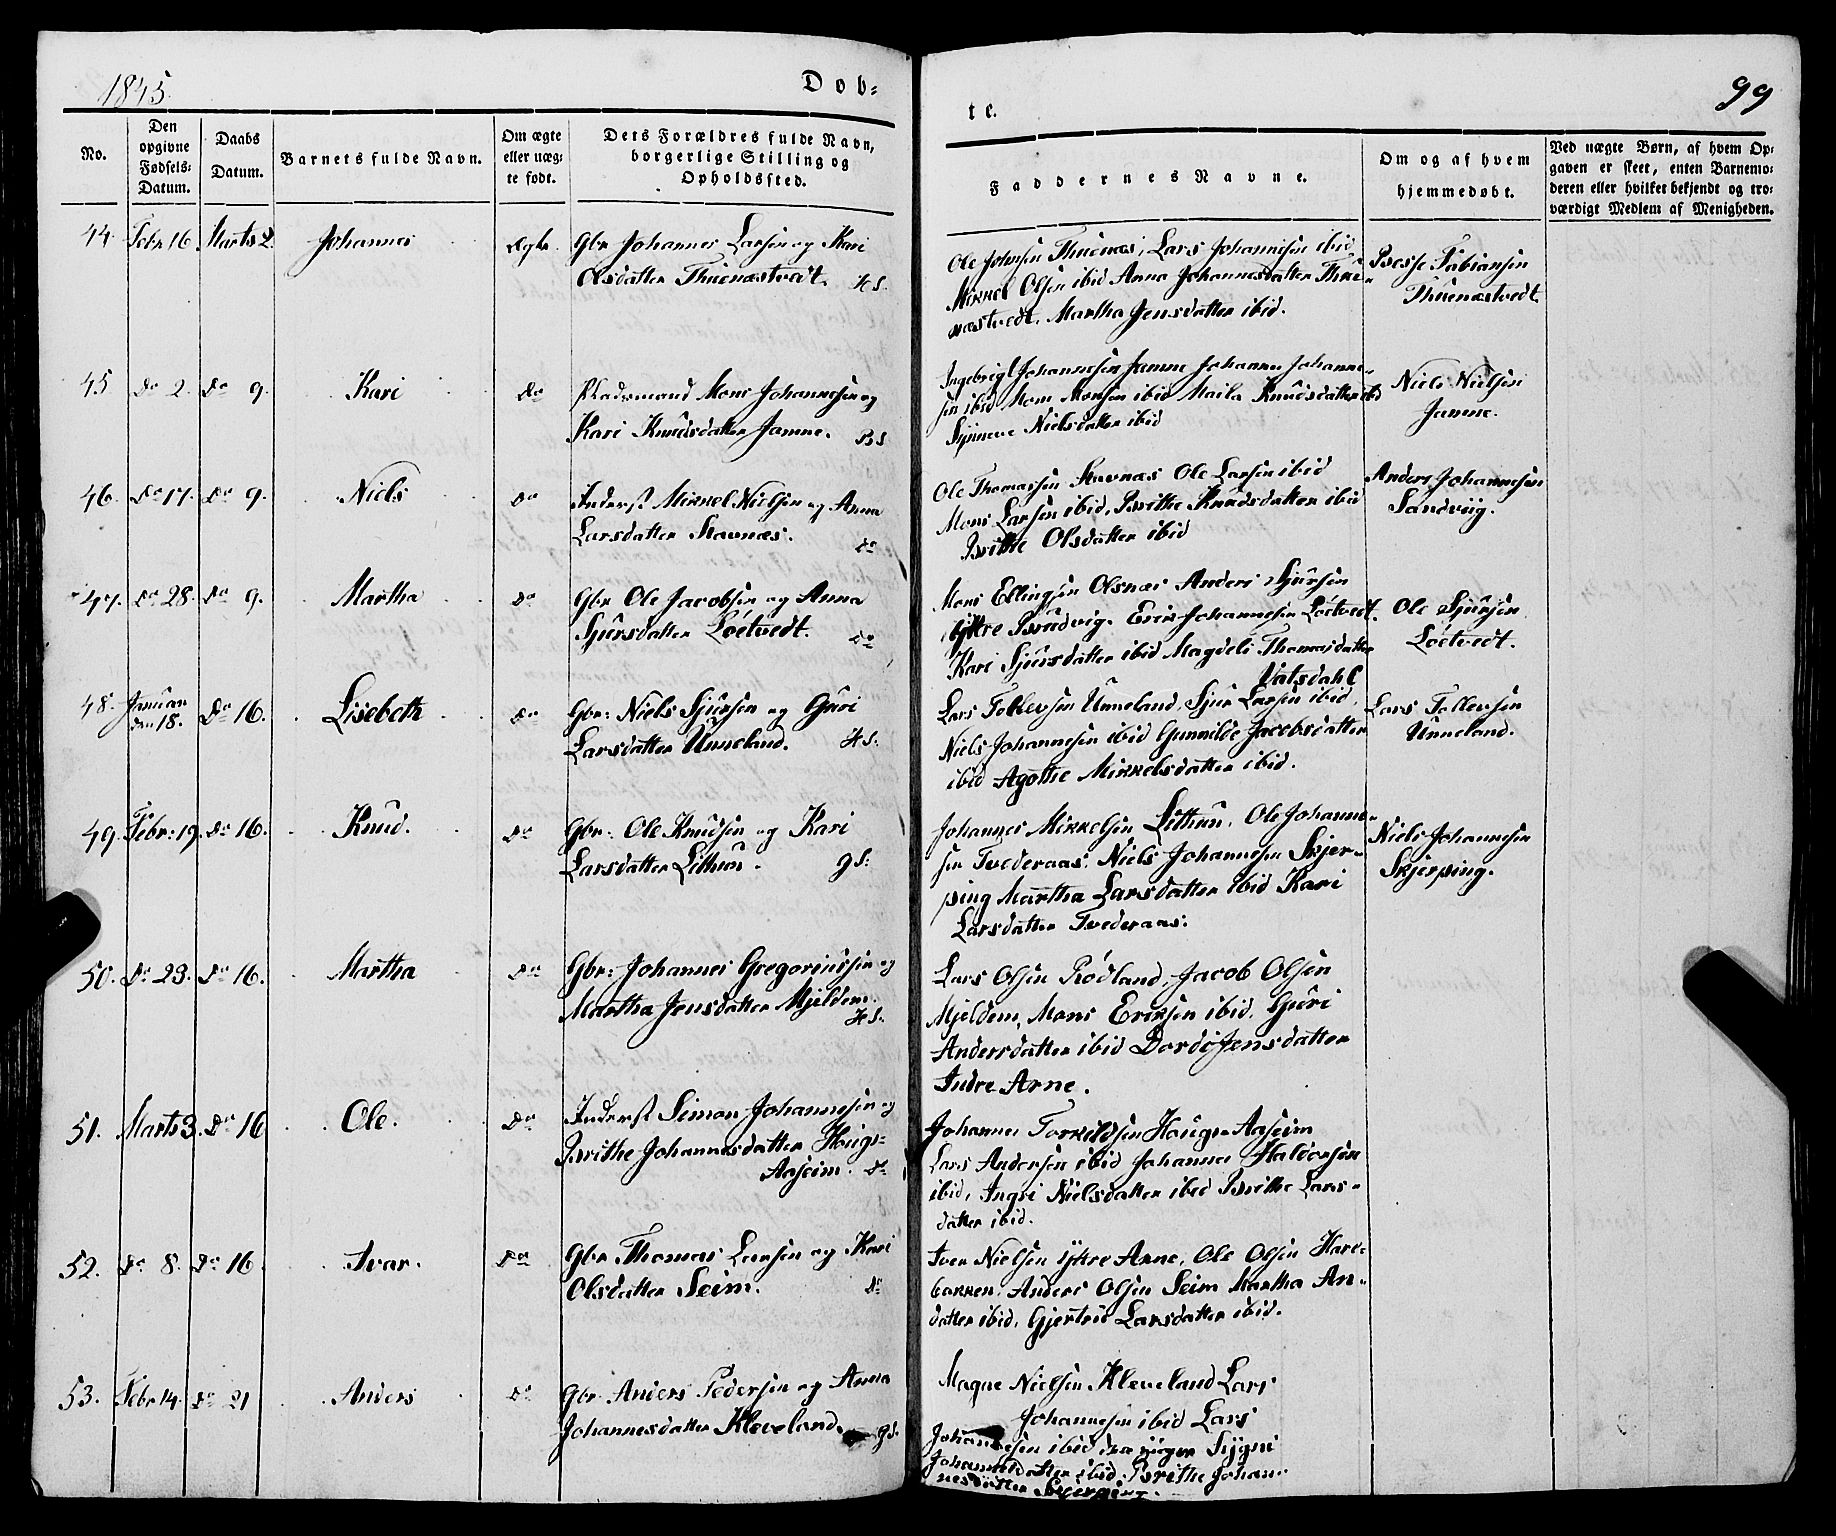 1845.
Døb=
te.
99
No.
Den opgivne Fødsels-Datum.
Daabs Datum.
Barnets fulde Navn.
Om ægte eller uæg-te født.
Dets Forældres fulde Navn, borgerlige Stilling og Opholdssted.
Faddernes Navne.
Om og af hvem hjemmedøbt.
Ved uægte Børn, af hvem Op-gaven er skeet, enten Barnemo-deren eller hvilket bekjendt og tro-værdigt Medlem af Menigheden.
44. Febr 16. Marts 2. Johannes Ægte. Gbr Johannes Larsen og Kari
Olsdatter Thuenæstvedt. HS.
Ole Johnsen Thuenæs, Lars Johannesen ibid
Mikkel Olsen ibid Anna Johannesdatter Thue-
næstvedt, Martha Jensdatter ibid.
Besse Fabiansen
Thuenæstvedt
45 Do 2. Do 9. Kari Do Pladsmand Mons Johannesen og
Kari Knudsdatter Jamne. BS
Ingebrigt Johannesen Jamne Johannes Johanne-
sen ibid Mons Monsen ibid Maila Knudsdatter ibid
Synneve Nielsdatter ibid
Niels Nielsen
Jamne.
46. Do 17. Do 9. Niels Do Inderst Mikkel Nielsen og Anna
Larsdatter Stavnæs. Do
Ole Thomassen Stavnæs Ole Larsen ibid
Mons Larsen ibid, Brithe Knudsdatter ibid
Brithe Olsdatter ibid
Anders Johannesen
Sandviig.
47. Do 28. Do 9. Martha Do Gbr Ole Jacobsen og Anna
Sjursdatter Loëtvedt. Do
Mons Ellingsen Olsnæs Anders Sjursen
Yttre Brudvig. Erik Johannesen Loëtvedt.
Kari Sjursdatter ibid Magdeli Thomasdatter
Vatsdahl
Ole Sjursen
Loëtvedt.
48. Januar
den 18. Do 16. Lisebeth Do Gbr: Niels Sjursen og Guri
Larsdatter Unneland. HS.
Lars Tollevsen Unneland, Sjur Larsen ibid,
Niels Johannesen ibid Gunnilde Jacobsdatter
ibid Agothe Mikkelsdatter ibid.
Lars Tollevsen
Unneland.
49. Febr: 19. Do 16. Knud. Do Gbr: Ole Knudsen og Kari
Larsdatter Lithun. GS:
Johannes Mikkelsen Lithun, Ole Johanne-
sen Tvederaas, Niels Johannesen Skjer-
ping Martha Larsdatter ibid Kari
Larsdatter Tvederaas:
Niels Johannesen
Skjerping.
50. Do 23. Do 16. Martha Do Gbr: Johannes Gregoriussen og
Martha Jensdatter Mjeldem. HS.
Lars Olsen Rödland, Jacob Olsen
Mjeldem, Mons Eriksen ibid, Guri
Andersdatter ibid Dordi Jensdatter
Indre Arne.
51. Marts 3. Do 16 Ole. Do Inderst Simon Johannesen og
Brithe Johannesdatter Hougs=
Aaseim. Do
Johannes Torkildsen Hougs-Aaseim
Lars Andersen ibid Johannes Haldorsen
ibid, Ingri Nielsdatter ibid Brithe Lars-
datter ibid.
52. Do 8. Do 16 Ivar. Do Gbr Thomas Larsen og Kari
Olsdatter Seim. Do
Iver Nielsen Yttre Arne, Ole Olsen Hare-
bakken, Anders Olsen Seim Martha An-
datter ibid, Gjertrud Larsdatter ibid.
53. Febr 14. Do 21 Anders Do Gbr Anders Pedersen og Anna
Johannesdatter Kleveland. GS.
Magne Nielsen Kleveland Lars
Johannesen ibid Lars
Johannesen ibid den yngre Sygni
Johannesdatter ibid, Brithe Johan-
nesdatter